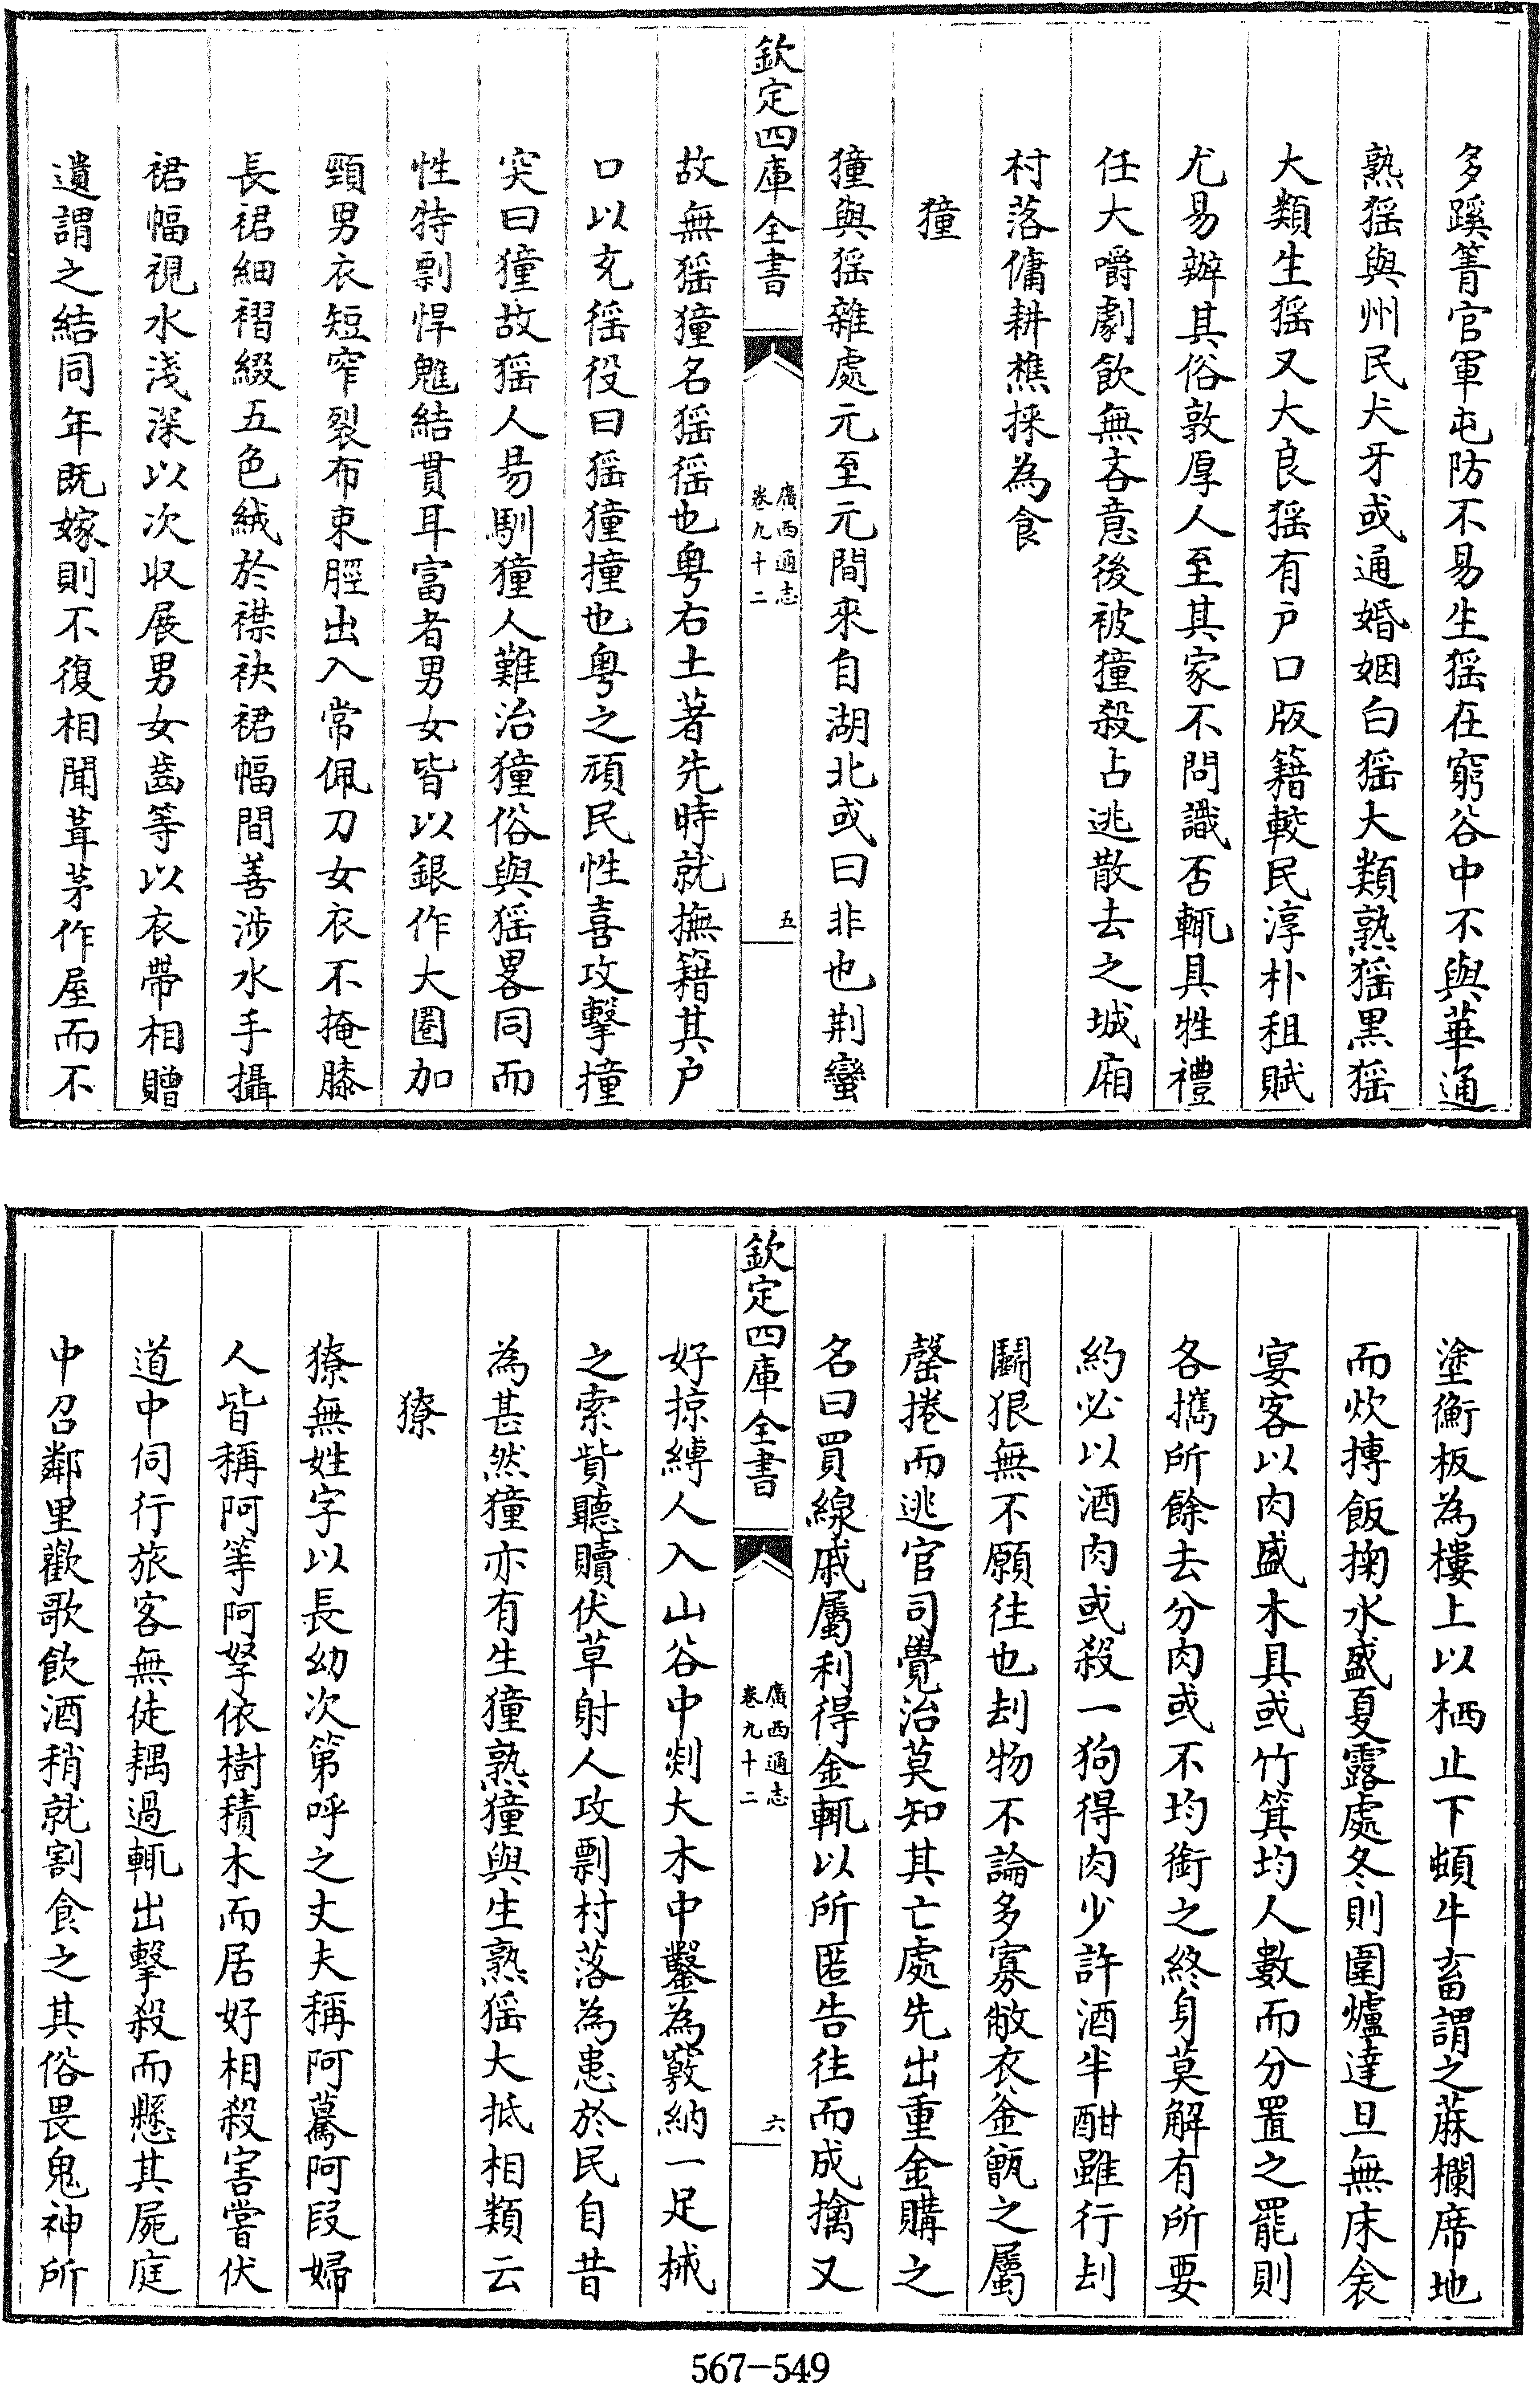 多蹊箐官軍屯防不易生猺在窮谷中不與華通
熟猺與州民犬牙或通婚姻白猺大類熟猺黑猺
大類生猺又大良猺有户口版籍較民淳朴租賦
尤易辦其俗敦厚人至其家不問識否輒具牲禮
任大嚼劇飲無吝意後被獞殺占逃散去之城廂
村落傭耕樵採為食
獞
獞與猺雜處元至元間來自湖北或曰非也荆蠻
欽定四庫全書
廣西通志
卷九十二
五
故無猺獞名猺徭也粤右土著先時就撫籍其户
口以充徭役曰猺獞撞也粤之頑民性喜攻擊撞
突曰獞故猺人易馴獞人難治獞俗與猺畧同而
性特剽悍魋結貫耳富者男女皆以銀作大圈加
頸男衣短窄裂布束脛出入常佩刀女衣不掩膝
長裙細褶綴五色絨於襟袂裙幅間善涉水手攝
裙幅視水淺深以次収展男女齒等以衣帶相贈
遺謂之結同年既嫁則不復相聞葺茅作屋而不
塗衡板為樓上以栖止下頓牛畜謂之蔴欄席地
而炊摶飯掬水盛夏露處冬則圍爐達旦無床衾
宴客以肉盛木具或竹箕均人數而分置之罷則
各攜所餘去分肉或不均銜之終身莫解有所要
約必以酒肉或殺一狗得肉少許酒半酣雖行刦
鬭狠無不願往也刦物不論多寡敝衣釜甑之屬
罄捲而逃官司覺治莫知其亡處先出重金購之
名曰買線戚屬利得金輒以所匿告往而成擒又
欽定四庫全書
廣西通志
卷九十二
六
好掠縛人入山谷中剡大木中鑿為竅納一足械
之索貲聽贖伏草射人攻剽村落為患於民自昔
為甚然獞亦有生獞熟獞與生熟猺大抵相類云
獠
獠無姓字以長幼次第呼之丈夫稱阿驀阿段婦
人皆稱阿等阿孥依樹積木而居好相殺害嘗伏
道中伺行旅客無徒耦過輒出擊殺而懸其屍庭
中召鄰里歡歌飲酒稍就割食之其俗畏鬼神所
567-549